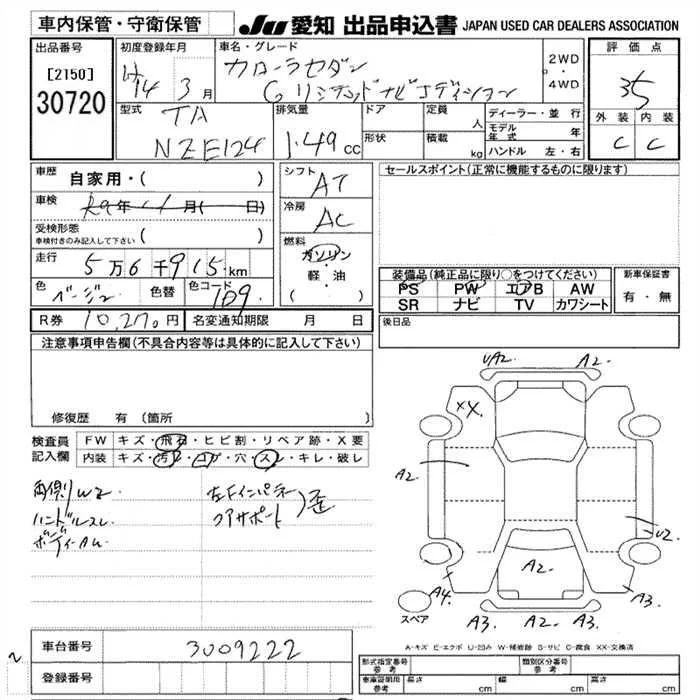 車内保管・守衛保管
JU 愛知 出品申込書 JAPAN USED CAR DEALERS ASSOCIATION
出品番号 初度登録年月 車名・グレード 評価点
[2150] H14年 3月 カローラセダン 2WD・4WD 35
30720 G リミテッドナビエディション
型式 TA NZE124 排気量 1.49cc ドア 形状 定員 人 積載 kg ディーラー・並行 モデル年式 年 ハンドル 左・右 外装 内装
C C
車歴 自家用・( ) シフト AT セールスポイント(正常に機能するものに限ります)
車検 年 月( 日) 冷房 AC
受検形態 車検付きのみ記入して下さい ( ) 燃料 ガソリン・軽油 ( )
走行 5万6千915km 装備品(純正品に限り○をつけてください) 新車保証書
色 ベージュ 色替 色コード 1D9 PS PW エアB AW 有・無
SR ナビ TV カワシート
R券 10,270円 名変通知期限 月 日 後日品
注意事項申告欄(不具合内容等は具体的に記入して下さい)
修復歴 有 〔箇所
検査員記入欄 FW キズ・飛石・ヒビ割・リペア跡・X要
内装 キズ・汚レ・コゲ・穴・スレ・キレ・破レ
両側リW2 左Fインパネ
ハンドルスレ コアサポート 歪
UA2. A2.
XX.
A2.
U2.
A2.
A4. A3. A2. A3. A3.
スペア
A-キズ E-エクボ U-凹み W-補修跡 S-サビ C-腐食 XX-交換済
車台番号 3009222
登録番号
型式指定番号 参考 類別区分番号 参考
車庫証明用 参考 長さ cm 幅 cm 高さ cm